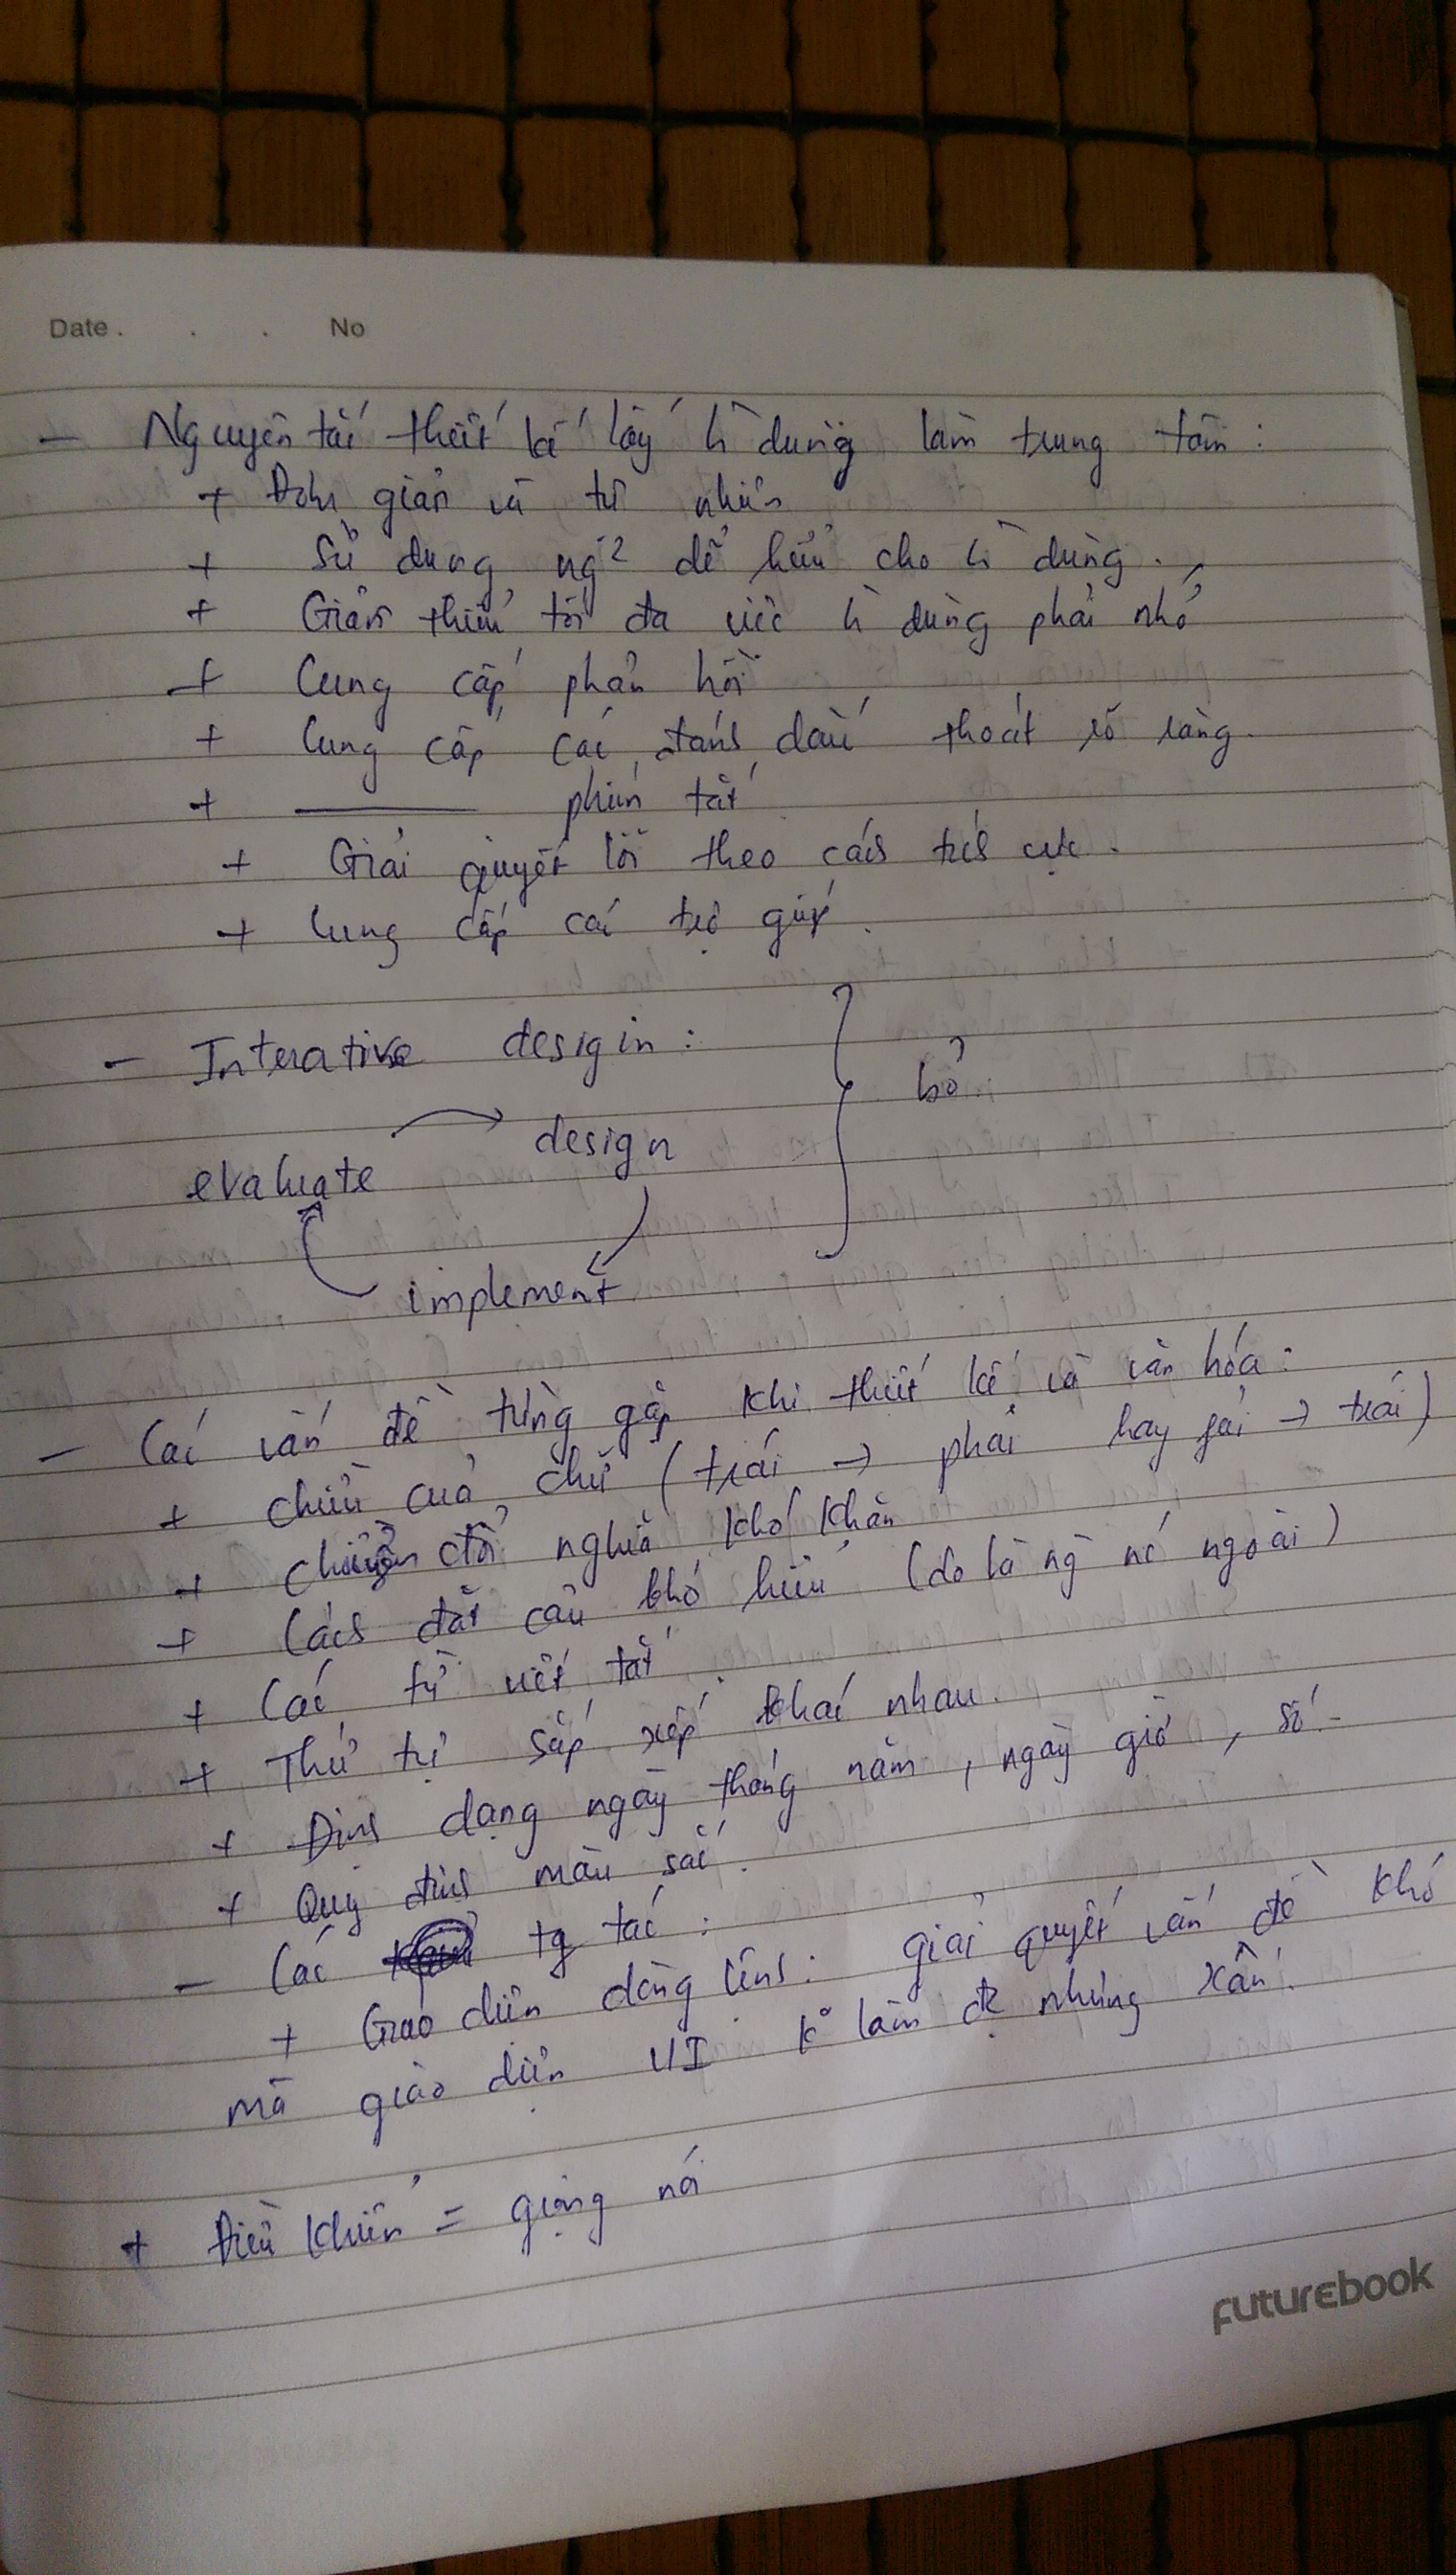 Date . . . No
- Nguyên tắc thiết kế lấy ng` dùng làm trung tâm :
+ Đơn giản và tự nhiên
+ Sử dụng ng² dễ hiểu cho ng` dùng .
+ Giảm thiểu tối đa việc ng` dùng phải nhớ
+ Cung cấp phản hồi
+ Cung cấp các đánh dấu thoát rõ ràng .
+ ——— phím tắt
+ Giải quyết lỗi theo cách tích cực .
+ Cung cấp các trợ giúp .
- Interative desigin :
bỏ .
design
evaluate
implement
- Các vấn đề từng gặp khi thiết kế và văn hóa :
+ chiều của chữ ( trái → phải hay fải → trái )
+ chuyển đổi nghĩa khó khăn
+ Cách đặt câu khó hiểu ( do là ng` nc ngoài )
+ Các từ viết tắt .
+ Thứ tự sắp xếp khác nhau .
+ Định dạng ngày tháng năm , ngày giờ , số .
+ Quy định màu sắc .
- Các tg tác :
+ Giao diện dòng lệnh : giải quyết vấn đề khó
mà giao diện UI k° làm đc nhưng xấu .
+ Điều khiển = giọng nói
futurebook